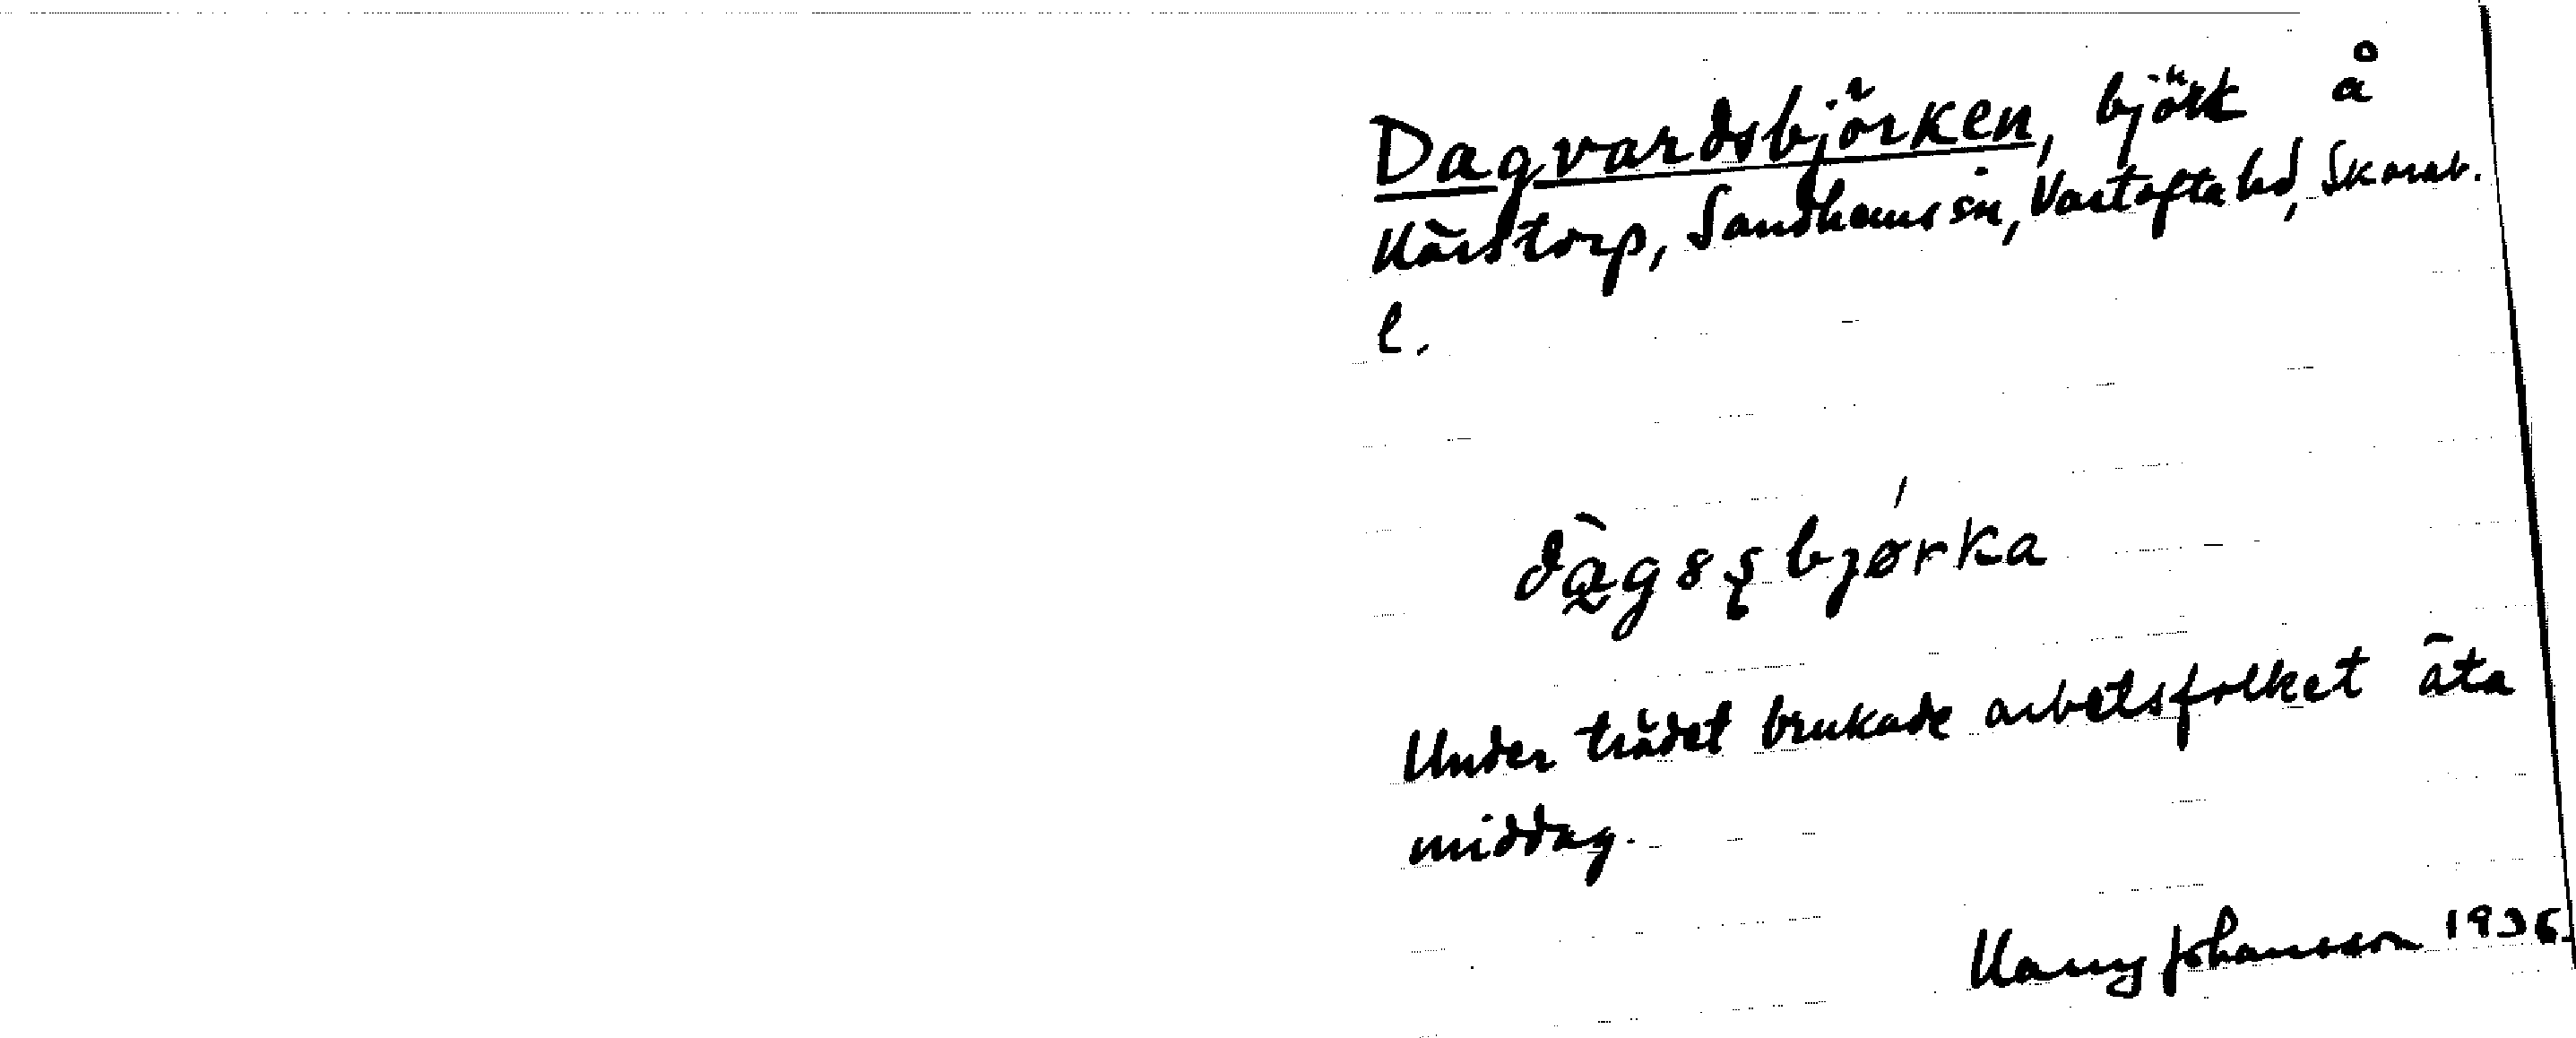 Dagvardsbjörken, björk å
Kärstorp, Sandhems sn, Vartofta hd, Skarab.
l.
dàgsşbjǿrka
Under trädet brukade arbetsfolket äta
middag.
Johansson 1936.